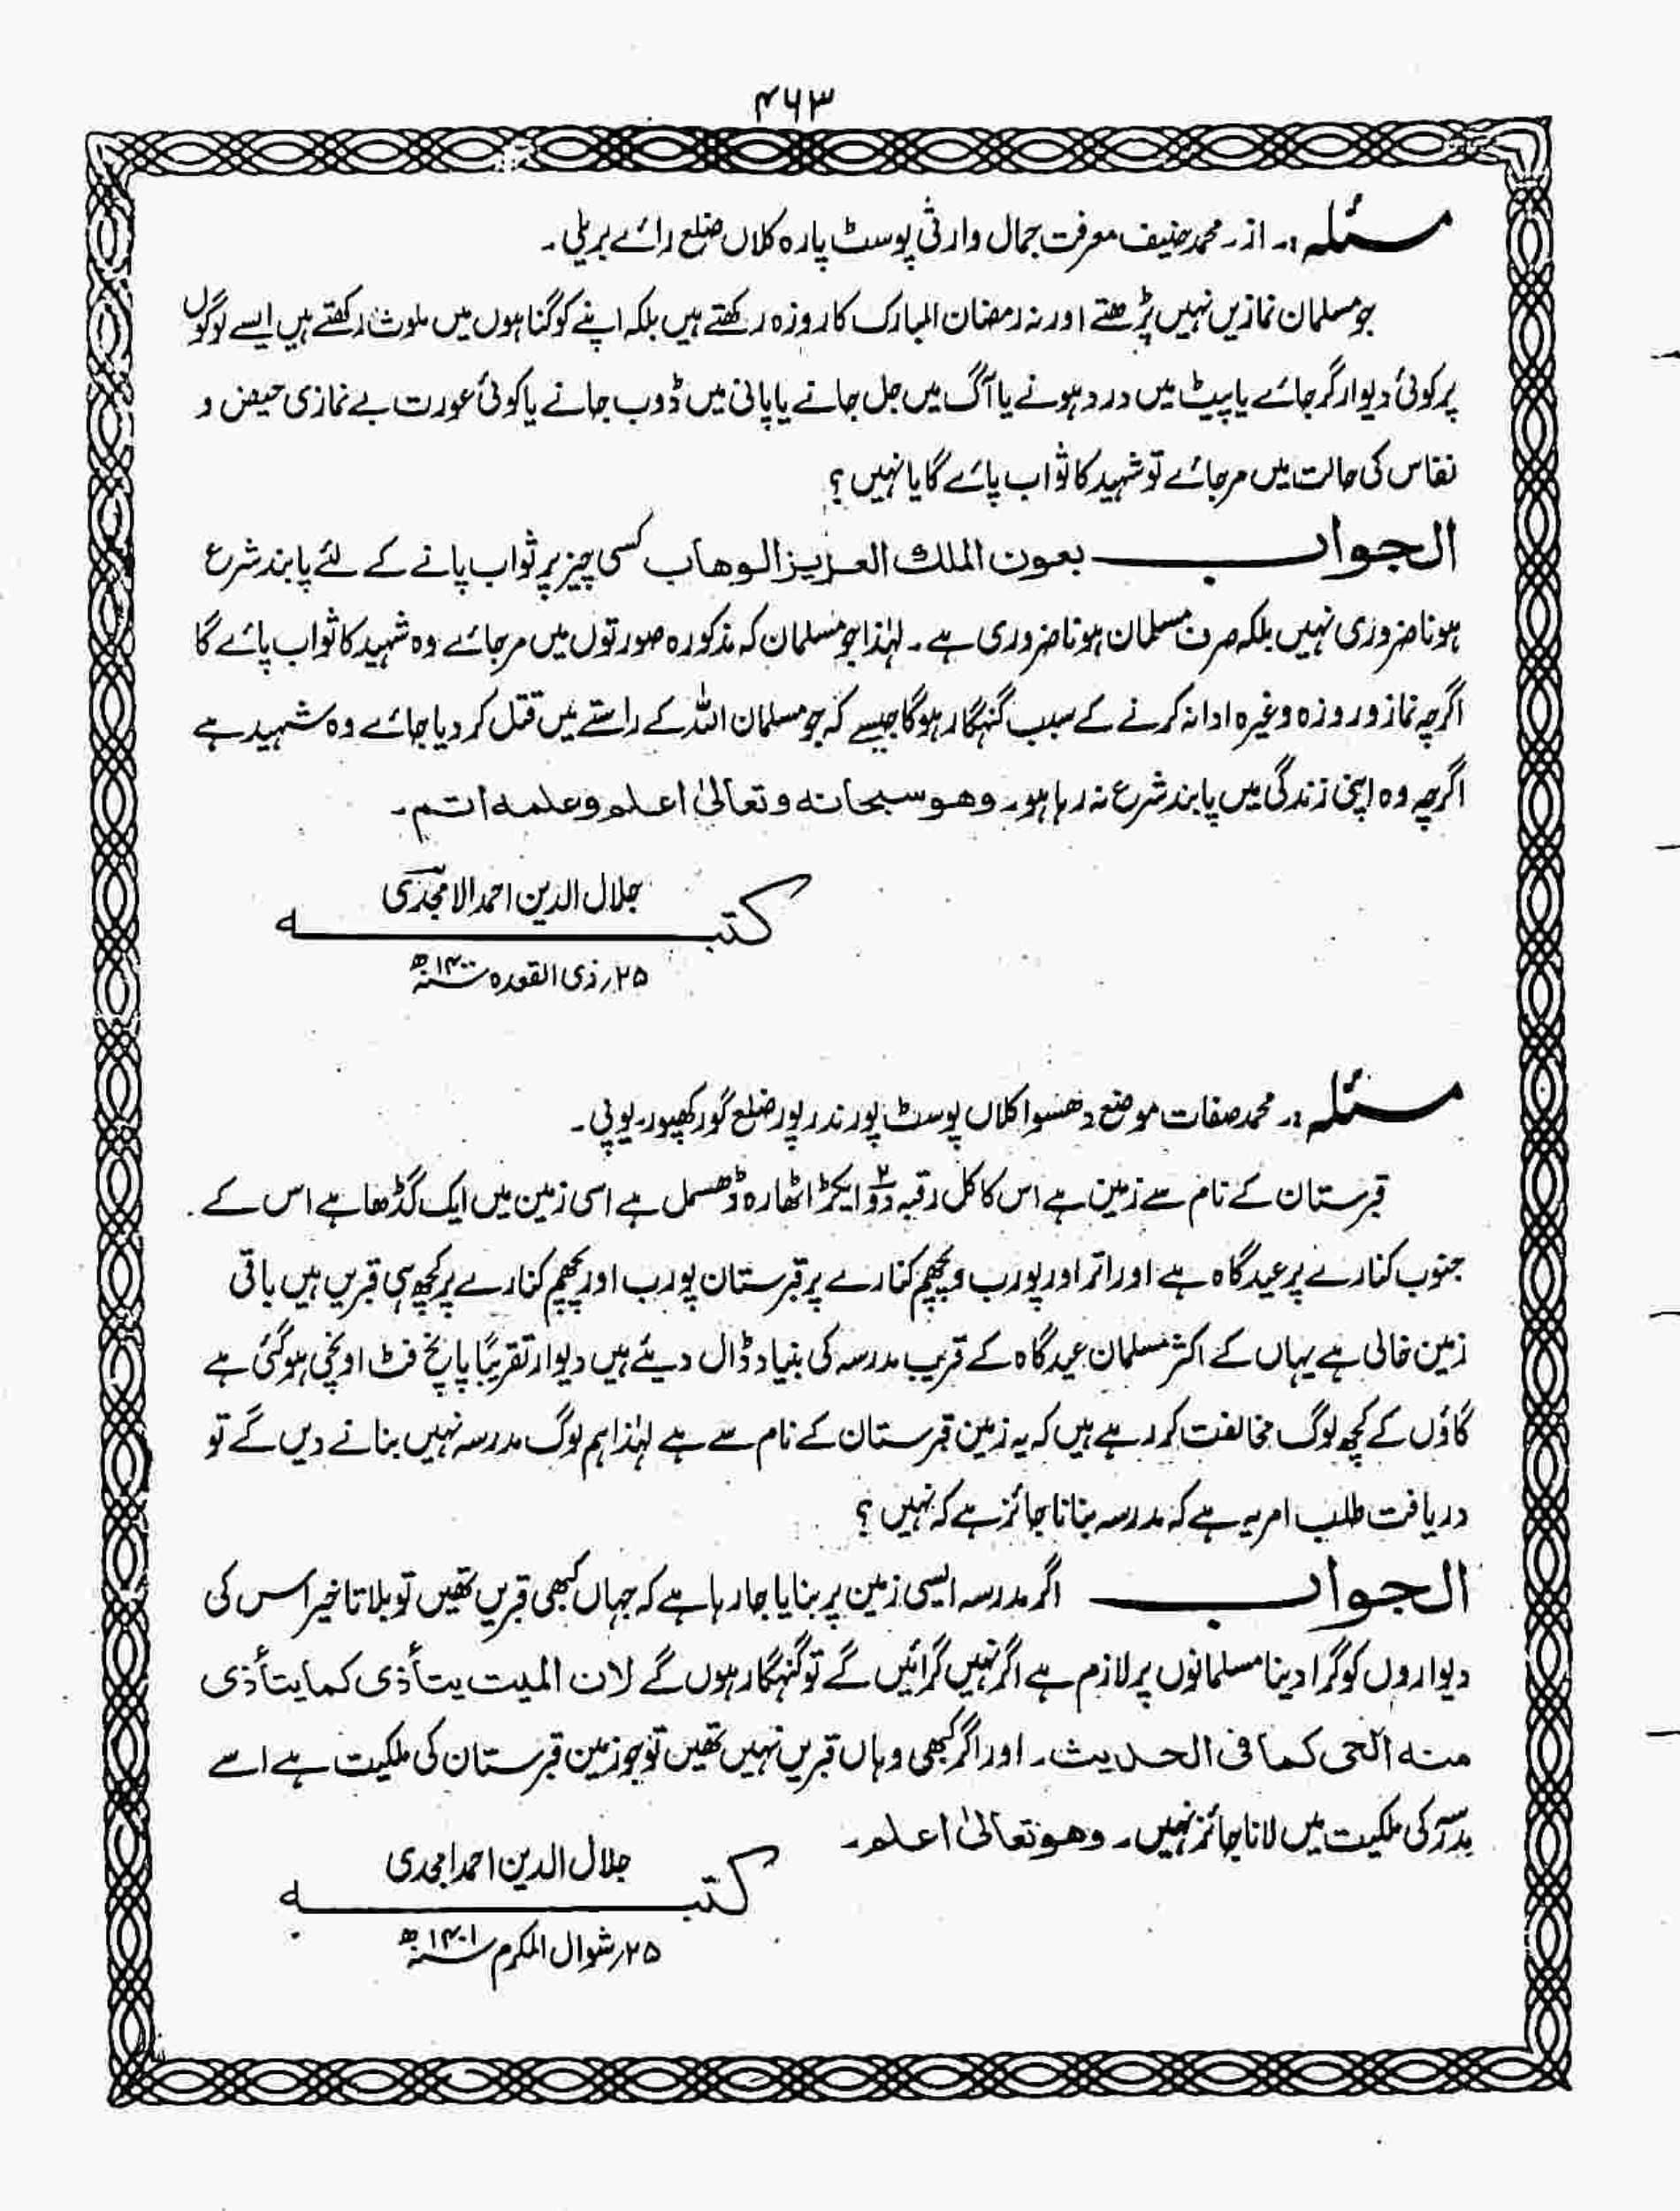 ۴۶۳
مسئلہ :۔ از۔ محمد حنیف معرفت جمال وارثی پوسٹ پارہ کلاں ضلع رائے بریلی۔
جو مسلمان نمازیں نہیں پڑھتے اور نہ رمضان المبارک کا روزہ رکھتے ہیں بلکہ اپنے کو گناہوں میں ملوث رکھتے ہیں ایسے لوگوں
پر کوئی دیوار گر جائے یا پیٹ میں درد ہونے یا آگ میں جل جانے یا پانی میں ڈوب جانے یا کوئی عورت بے نمازی حیض و
نفاس کی حالت میں مر جائے تو شہید کا ثواب پائے گا یا نہیں ؟
الجواب بعون الملك العزيز الوهاب کسی چیز پر ثواب پانے کے لئے پابند شرع
ہونا ضروری نہیں بلکہ صرف مسلمان ہونا ضروری ہے۔ لہٰذا جو مسلمان کہ مذکورہ صورتوں میں مر جائے وہ شہید کا ثواب پائے گا
اگرچہ نماز و روزہ وغیرہ ادا نہ کرنے کے سبب گنہگار ہوگا جیسے کہ جو مسلمان اللہ کے راستے میں قتل کر دیا جائے وہ شہید ہے
اگرچہ وہ اپنی زندگی میں پابند شرع نہ رہا ہو۔ وهو سبحانه وتعالىٰ اعلم وعلمه اتم۔
جلال الدین احمد الامجدی
کتبہ
۲۵؍ ذی القعدہ ۱۴۰۰ھ
مسئلہ :۔ محمد صفات موضع دھسوا کلاں پوسٹ پورندر پور ضلع گورکھپور۔ یوپی۔
قبرستان کے نام سے زمین ہے اس کا کل رقبہ دو۲ ایکڑ اٹھارہ ڈھسمل ہے اسی زمین میں ایک گڈھا ہے اس کے
جنوب کنارے پر عید گاہ ہے اور اتر اور پورب و پچھم کنارے پر قبرستان پورب اور پچھم کنارے پر کچھ ہی قبریں ہیں باقی
زمین خالی ہے یہاں کے اکثر مسلمان عید گاہ کے قریب مدرسہ کی بنیاد ڈال دیئے ہیں دیوار تقریباً پانچ فٹ اونچی ہوگئی ہے
گاؤں کے کچھ لوگ مخالفت کر رہے ہیں کہ یہ زمین قبرستان کے نام سے ہے لہٰذا ہم لوگ مدرسہ نہیں بنانے دیں گے تو
دریافت طلب امر یہ ہے کہ مدرسہ بنانا جائز ہے کہ نہیں ؟
الجواب اگر مدرسہ ایسی زمین پر بنایا جا رہا ہے کہ جہاں کبھی قبریں تھیں تو بلا تاخیر اس کی
دیواروں کو گرا دینا مسلمانوں پر لازم ہے اگر نہیں گرائیں گے تو گنہگار ہوں گے لان الميت يتأذى كما يتأذى
منه الحي كما في الحديث۔ اور اگر کبھی وہاں قبریں نہیں تھیں تو جو زمین قبرستان کی ملکیت ہے اسے
مدرسہ کی ملکیت میں لانا جائز نہیں۔ وهو تعالىٰ اعلم۔
جلال الدین احمد امجدی
کتبہ
۲۵؍ شوال المکرم ۱۴۰۱ھ